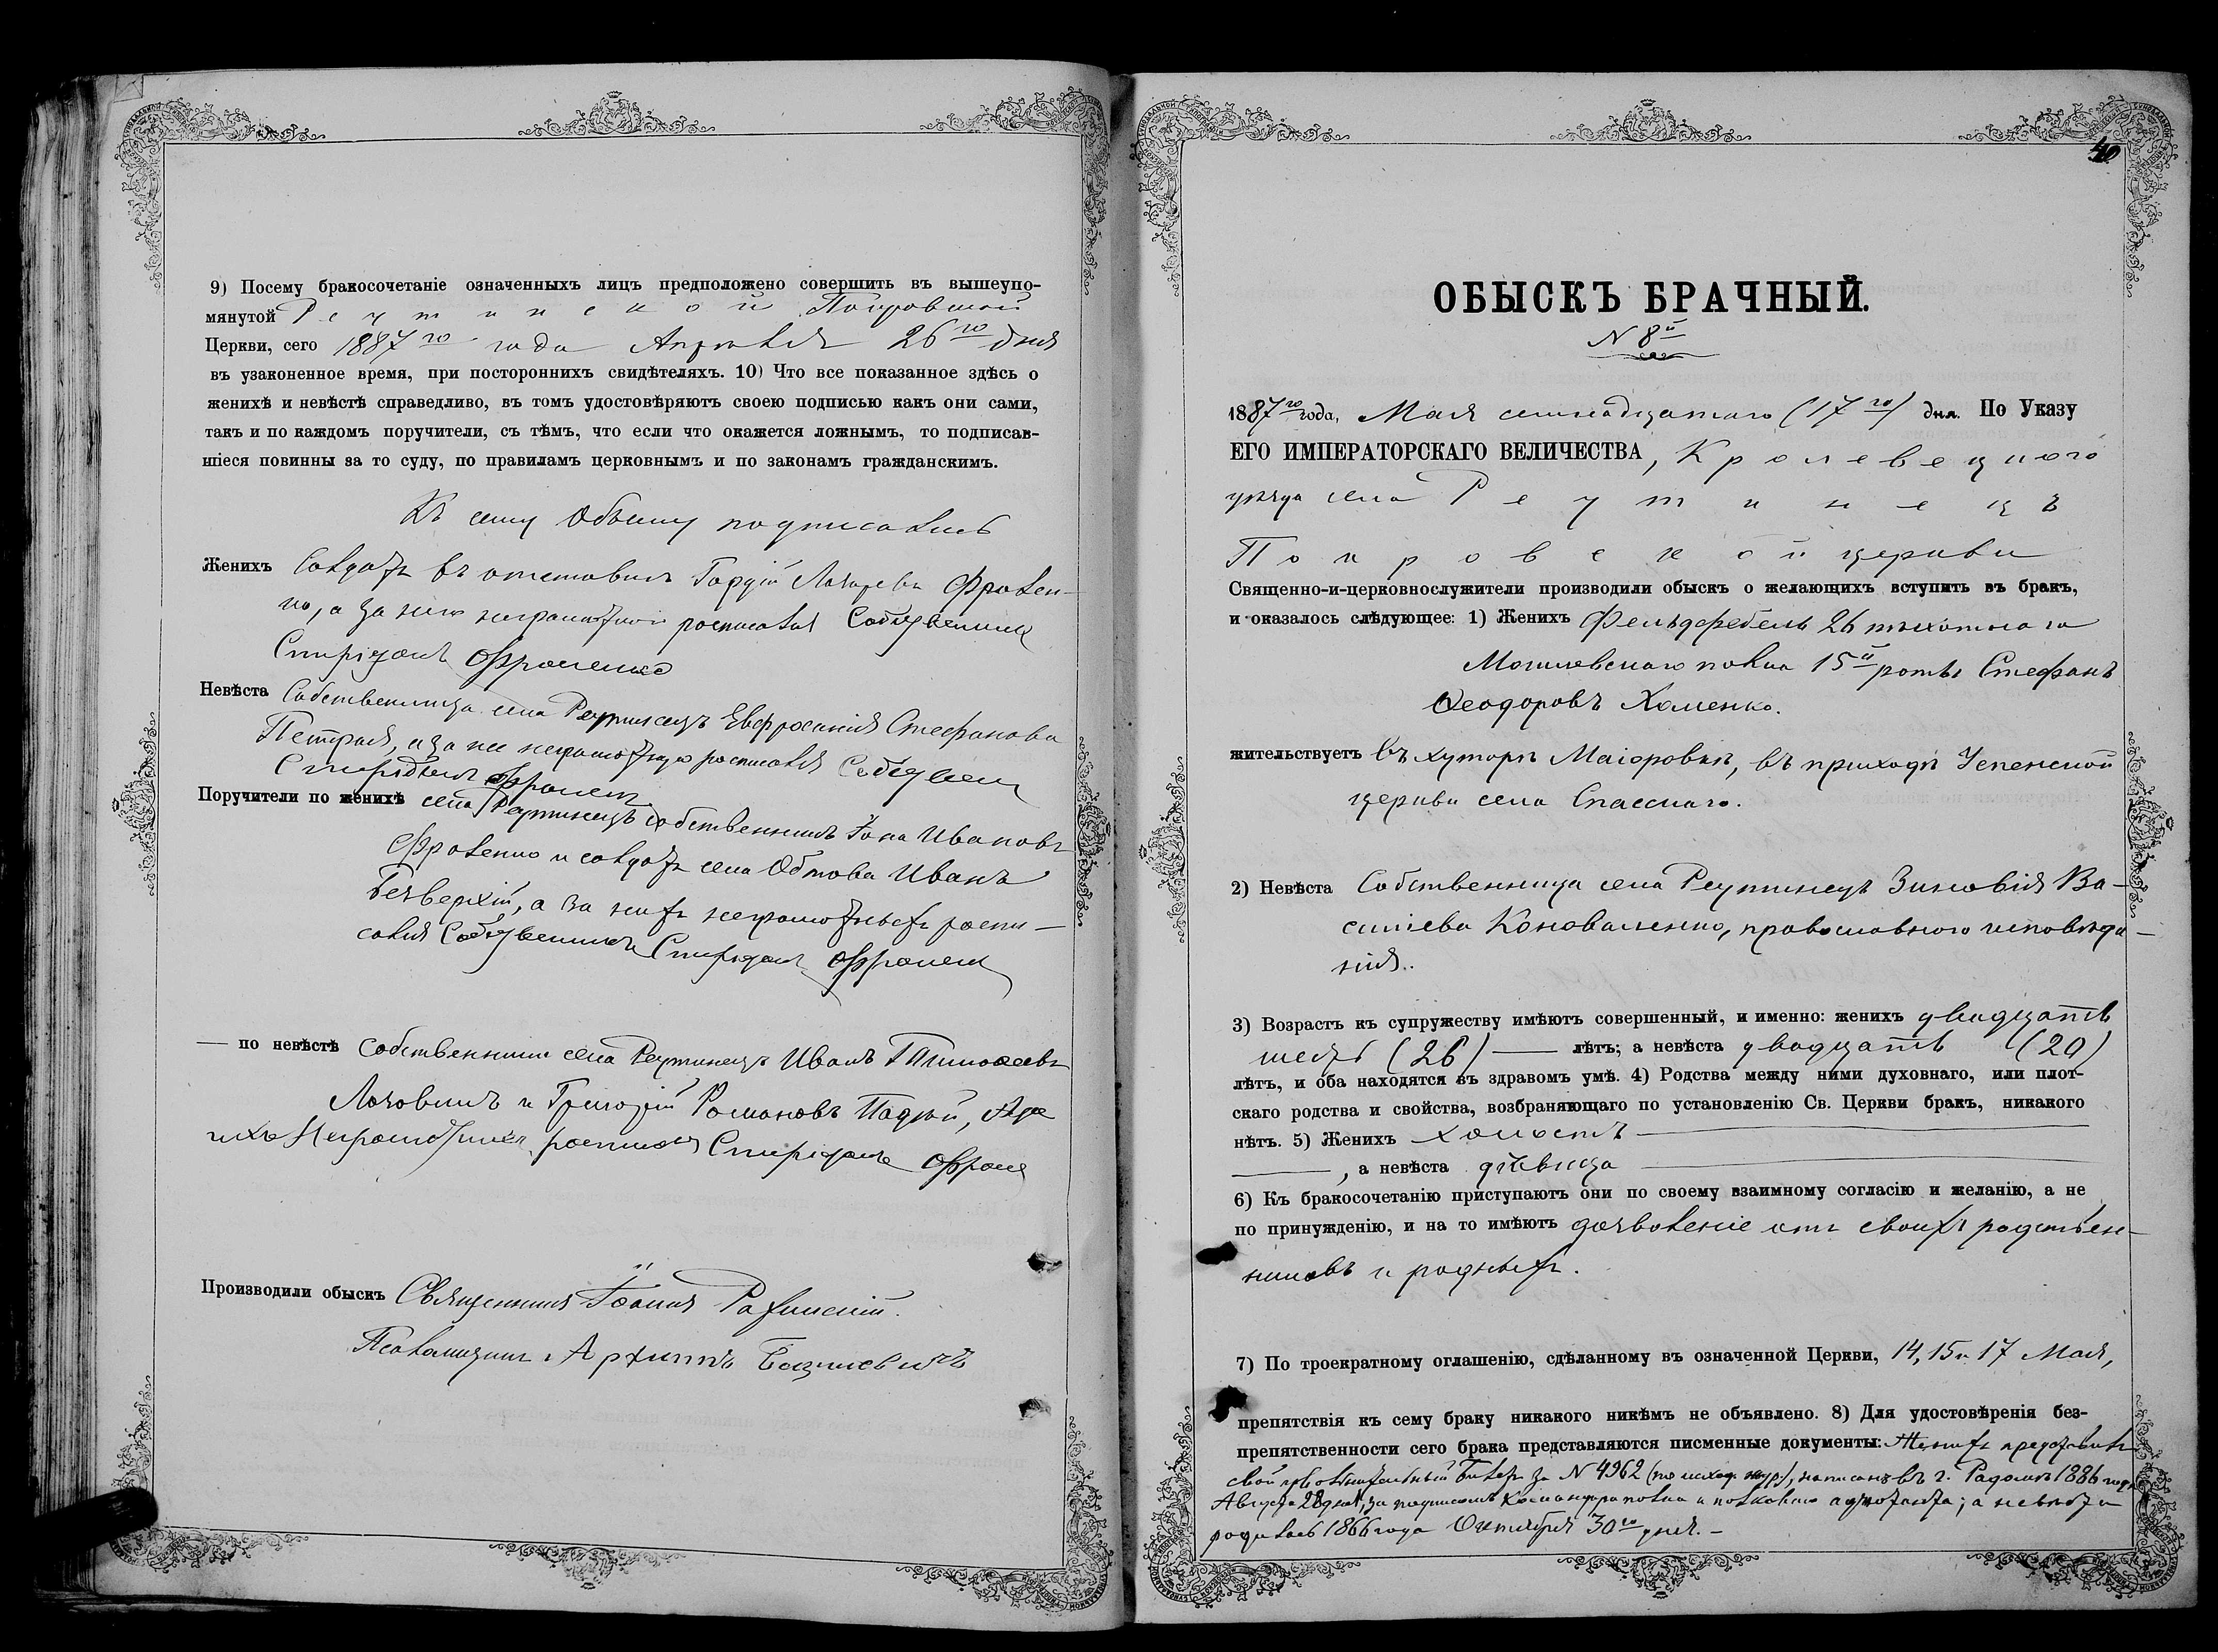 9) Посему бракосочетаніе означенныхъ лицъ предположено совершить въ вышеупо-
мянутой Реутинской Покровской
Церкви, сего 1887го года Апрѣля 26го дня
въ узаконенное время, при постороннихъ свидѣтеляхъ. 10) Что все показанное здѣсь о
женихѣ и невѣстѣ справедливо, въ томъ удостовѣряютъ своею подписью какъ они сами,
такъ и по каждомъ поручители, съ тѣмъ, что если что окажется ложнымъ, то подписав-
шіеся повинны за то суду, по правиламъ церковнымъ и по законамъ гражданскимъ.
Къ сему обыску подписались
Женихъ Солдатъ въ отставкѣ Гордій Лазаревъ Фролен-
ко, а за него неграмотного росписался
Спиридонъ Фроленко
Невѣста Собственница села Реутинецъ Евфросинія Стефанова
а за нее неграмотную росписался
Спиридонъ
Поручители по женихѣ села Реутинецъ собственникъ Іона Ивановъ
Фроленко и солдатъ села Обтова Иванъ
Безверхій, а за нихъ неграмотныхъ роспи-
сался Спиридонъ
— по невѣстѣ собственники села Реутинецъ Иванъ Тимофеевъ
и Григорій Романовъ
росписался Спиридонъ
Производили обыскъ Священникъ Іоаннъ
Псаломщикъ Архиппъ
40
ОБЫСКЪ БРАЧНЫЙ.
N 8й
1887го года, Мая семнадцатаго (17го) дня. По Указу
ЕГО ИМПЕРАТОРСКАГО ВЕЛИЧЕСТВА, Кролевецкого
уѣзда села Реутинецъ
Покровской церкви
Священно-и-церковнослужители производили обыскъ о желающихъ вступить въ бракъ,
и оказалось слѣдующее: 1) Женихъ Фельдфебель 26 пѣхотнаго
Могилевскаго полка 15й роты Стефанъ
Ѳеодоровъ Хоменко.
жительствуетъ въ хуторѣ Маіоровкѣ, въ приходѣ Успенской
церкви села Спасскаго.
2) Невѣста Собственница села Реутинецъ Зиновія Ва-
силіева Коноваленко, православного исповѣда-
нія.
3) Возрастъ къ супружеству имѣютъ совершенный, и именно: женихъ двадцать
шесть (26) — лѣтъ; а невѣста двадцать (20)
лѣтъ, и оба находятся въ здравомъ умѣ. 4) Родства между ними духовнаго, или плот-
скаго родства и свойства, возбраняющаго по установленію Св. Церкви бракъ, никакого
нѣтъ. 5) Женихъ холостъ —
—, а невѣста дѣвица —
6) Къ бракосочетанію приступаютъ они по своему взаимному согласію и желанію, а не
по принужденію, и на то имѣютъ дозволеніе отъ своихъ родствен-
никовъ и родныхъ.
7) По троекратному оглашенію, сдѣланному въ означенной Церкви, 14, 15 и 17 Мая,
препятствія къ сему браку никакого никѣмъ не объявлено. 8) Для удостовѣренія без-
препятственности сего брака представляются писменные документы: Женихъ представилъ
свой увольнительный билетъ за N 4962 написанъ въ г. Радомѣ 1886 года
Августа 28 дня, за подписомъ Командира полка и полковаго адъютанта; а невѣста
родилась 1866 года Октября 30го дня. –